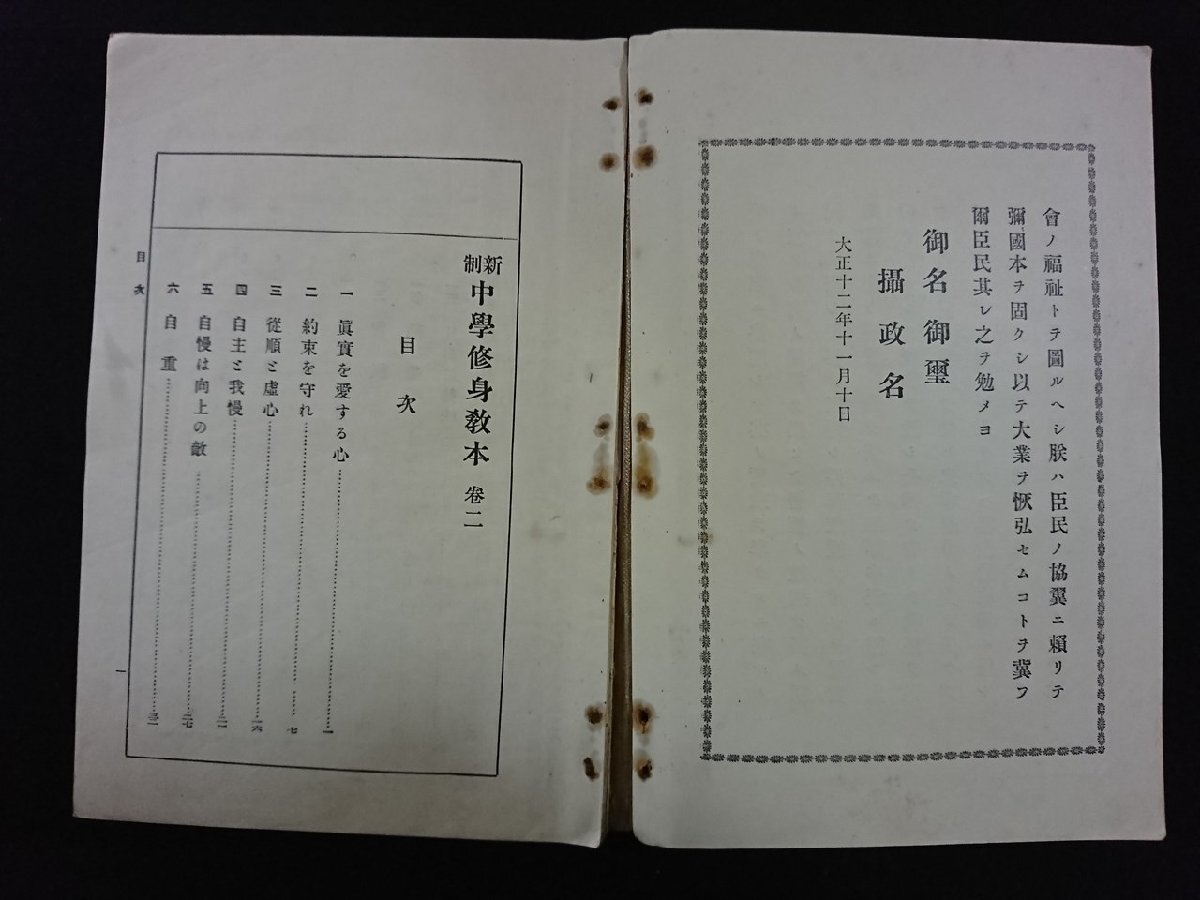 會ノ福祉トヲ圖ルヘシ朕ハ臣民ノ協翼ニ賴リテ
彌國本ヲ固クシ以テ大業ヲ恢弘セムコトヲ冀フ
爾臣民其レ之ヲ勉メヨ
御名御璽
攝政名
大正十二年十一月十日
新制中學修身敎本 卷二
目次
一 眞實を愛する心………一
二 約束を守れ………七
三 從順と虛心………一六
四 自主と我慢………二二
五 自慢は向上の敵………二七
六 自重………
目次
一